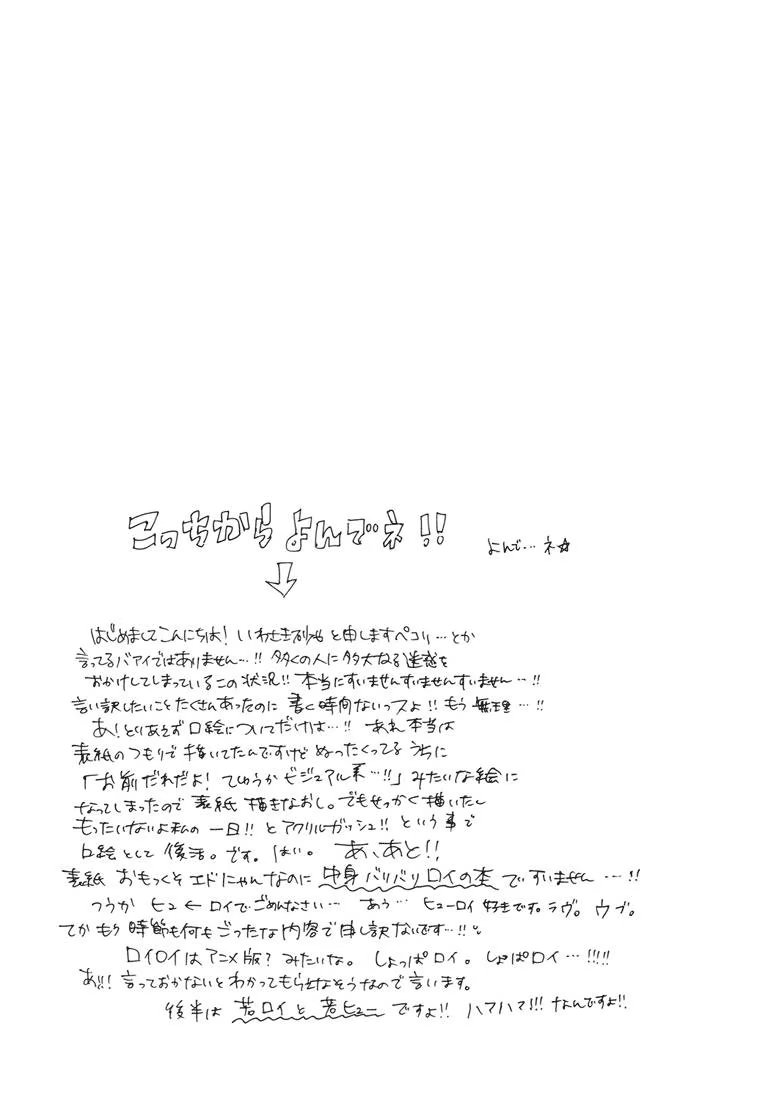 こっちからよんでネ!!
よんで…ネ☆
はじめましてこんにちは!いわさき と申しますペコリ…とか
言ってるバアイではありません…!!多くの人に多大なる迷惑を
おかけしてしまっているこの状況!!本当にすいませんすいませんすいません…!!
言い訳したいことたくさんあったのに書く時間ないっスよ!!もう無理…!!
あ!とりあえず口絵についてだけは…!!あれ本当は
表紙のつもりで描いてたんですけどぬったくってるうちに
「お前だれだよ!てゆうかビジュアル系…!!」みたいな絵に
なってしまったので表紙描きなおし。でもせっかく描いたし
もったいないよ私の一日!!とアクリルガッシュ!!という事で
口絵として復活。です。はい。あ、あと!!
表紙おもっくそエドにゃんなのに中身バリバリロイの本ですいません…!!
つうかヒュ←ロイでごめんなさい…あう…ヒューロイ好きです。ラヴ。ウブ。
てかもう時節も何もごったな内容で申し訳ないです…!!
ロイロイはアニメ版?みたいな。しょっぱロイ。しょぱロイ…!!!!
あ!!言っておかないとわかってもらえなそうなので言います。
後半は若ロイと若ヒューですよ!!ハァハァ!!!なんですよ!!